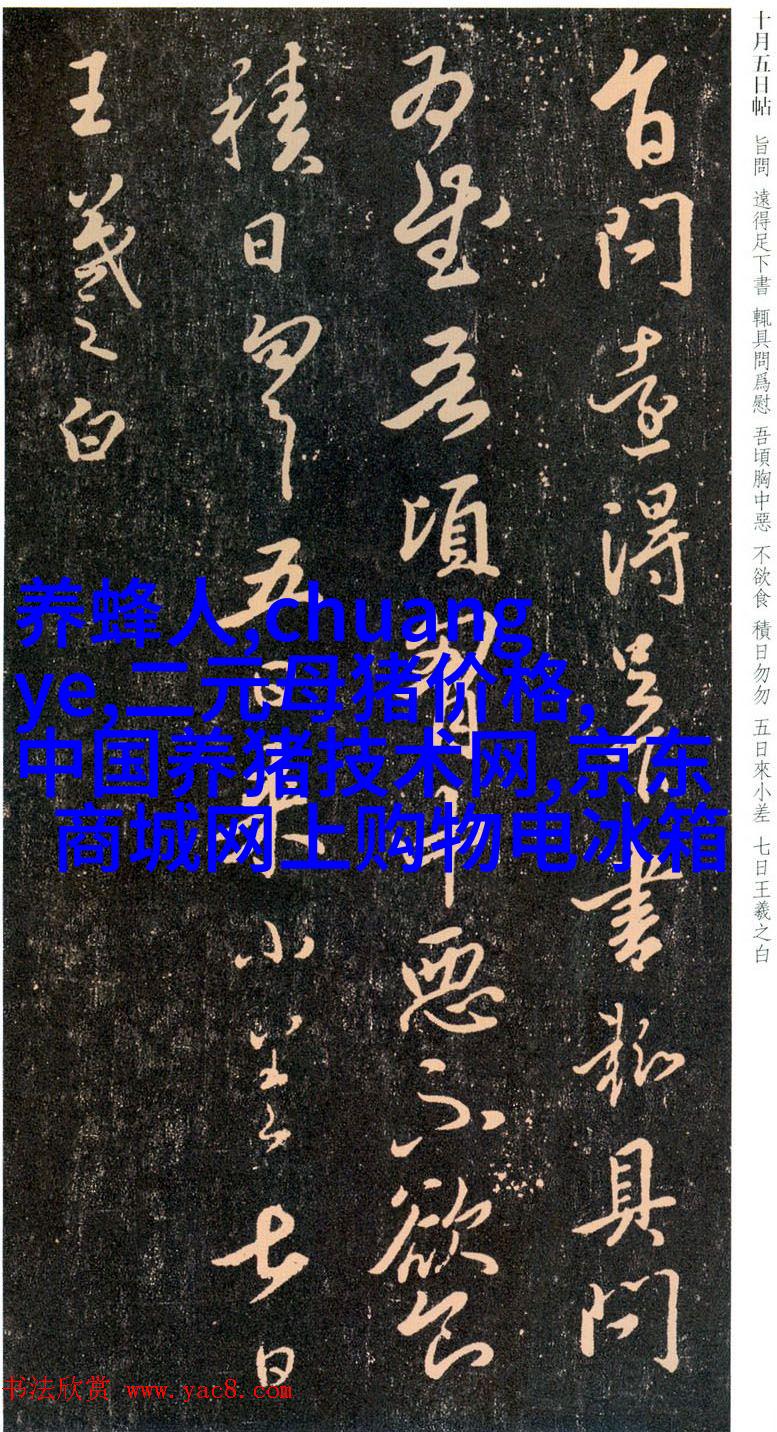 十月五日帖 旨問 遠得足下書 輒具問爲慰 吾頃胸中惡 不欲食 積日勿勿 五日來小差 七日王羲之白
旨問遠得足下書輒具問
爲慰吾頃胸中惡不欲食
積日勿勿五日來小差七日
王羲之白
养蜂人,chuang
ye,二元母猪价格,
中国养猪技术网,京东
商城网上购物电冰箱
书法欣赏 www.yac8.com